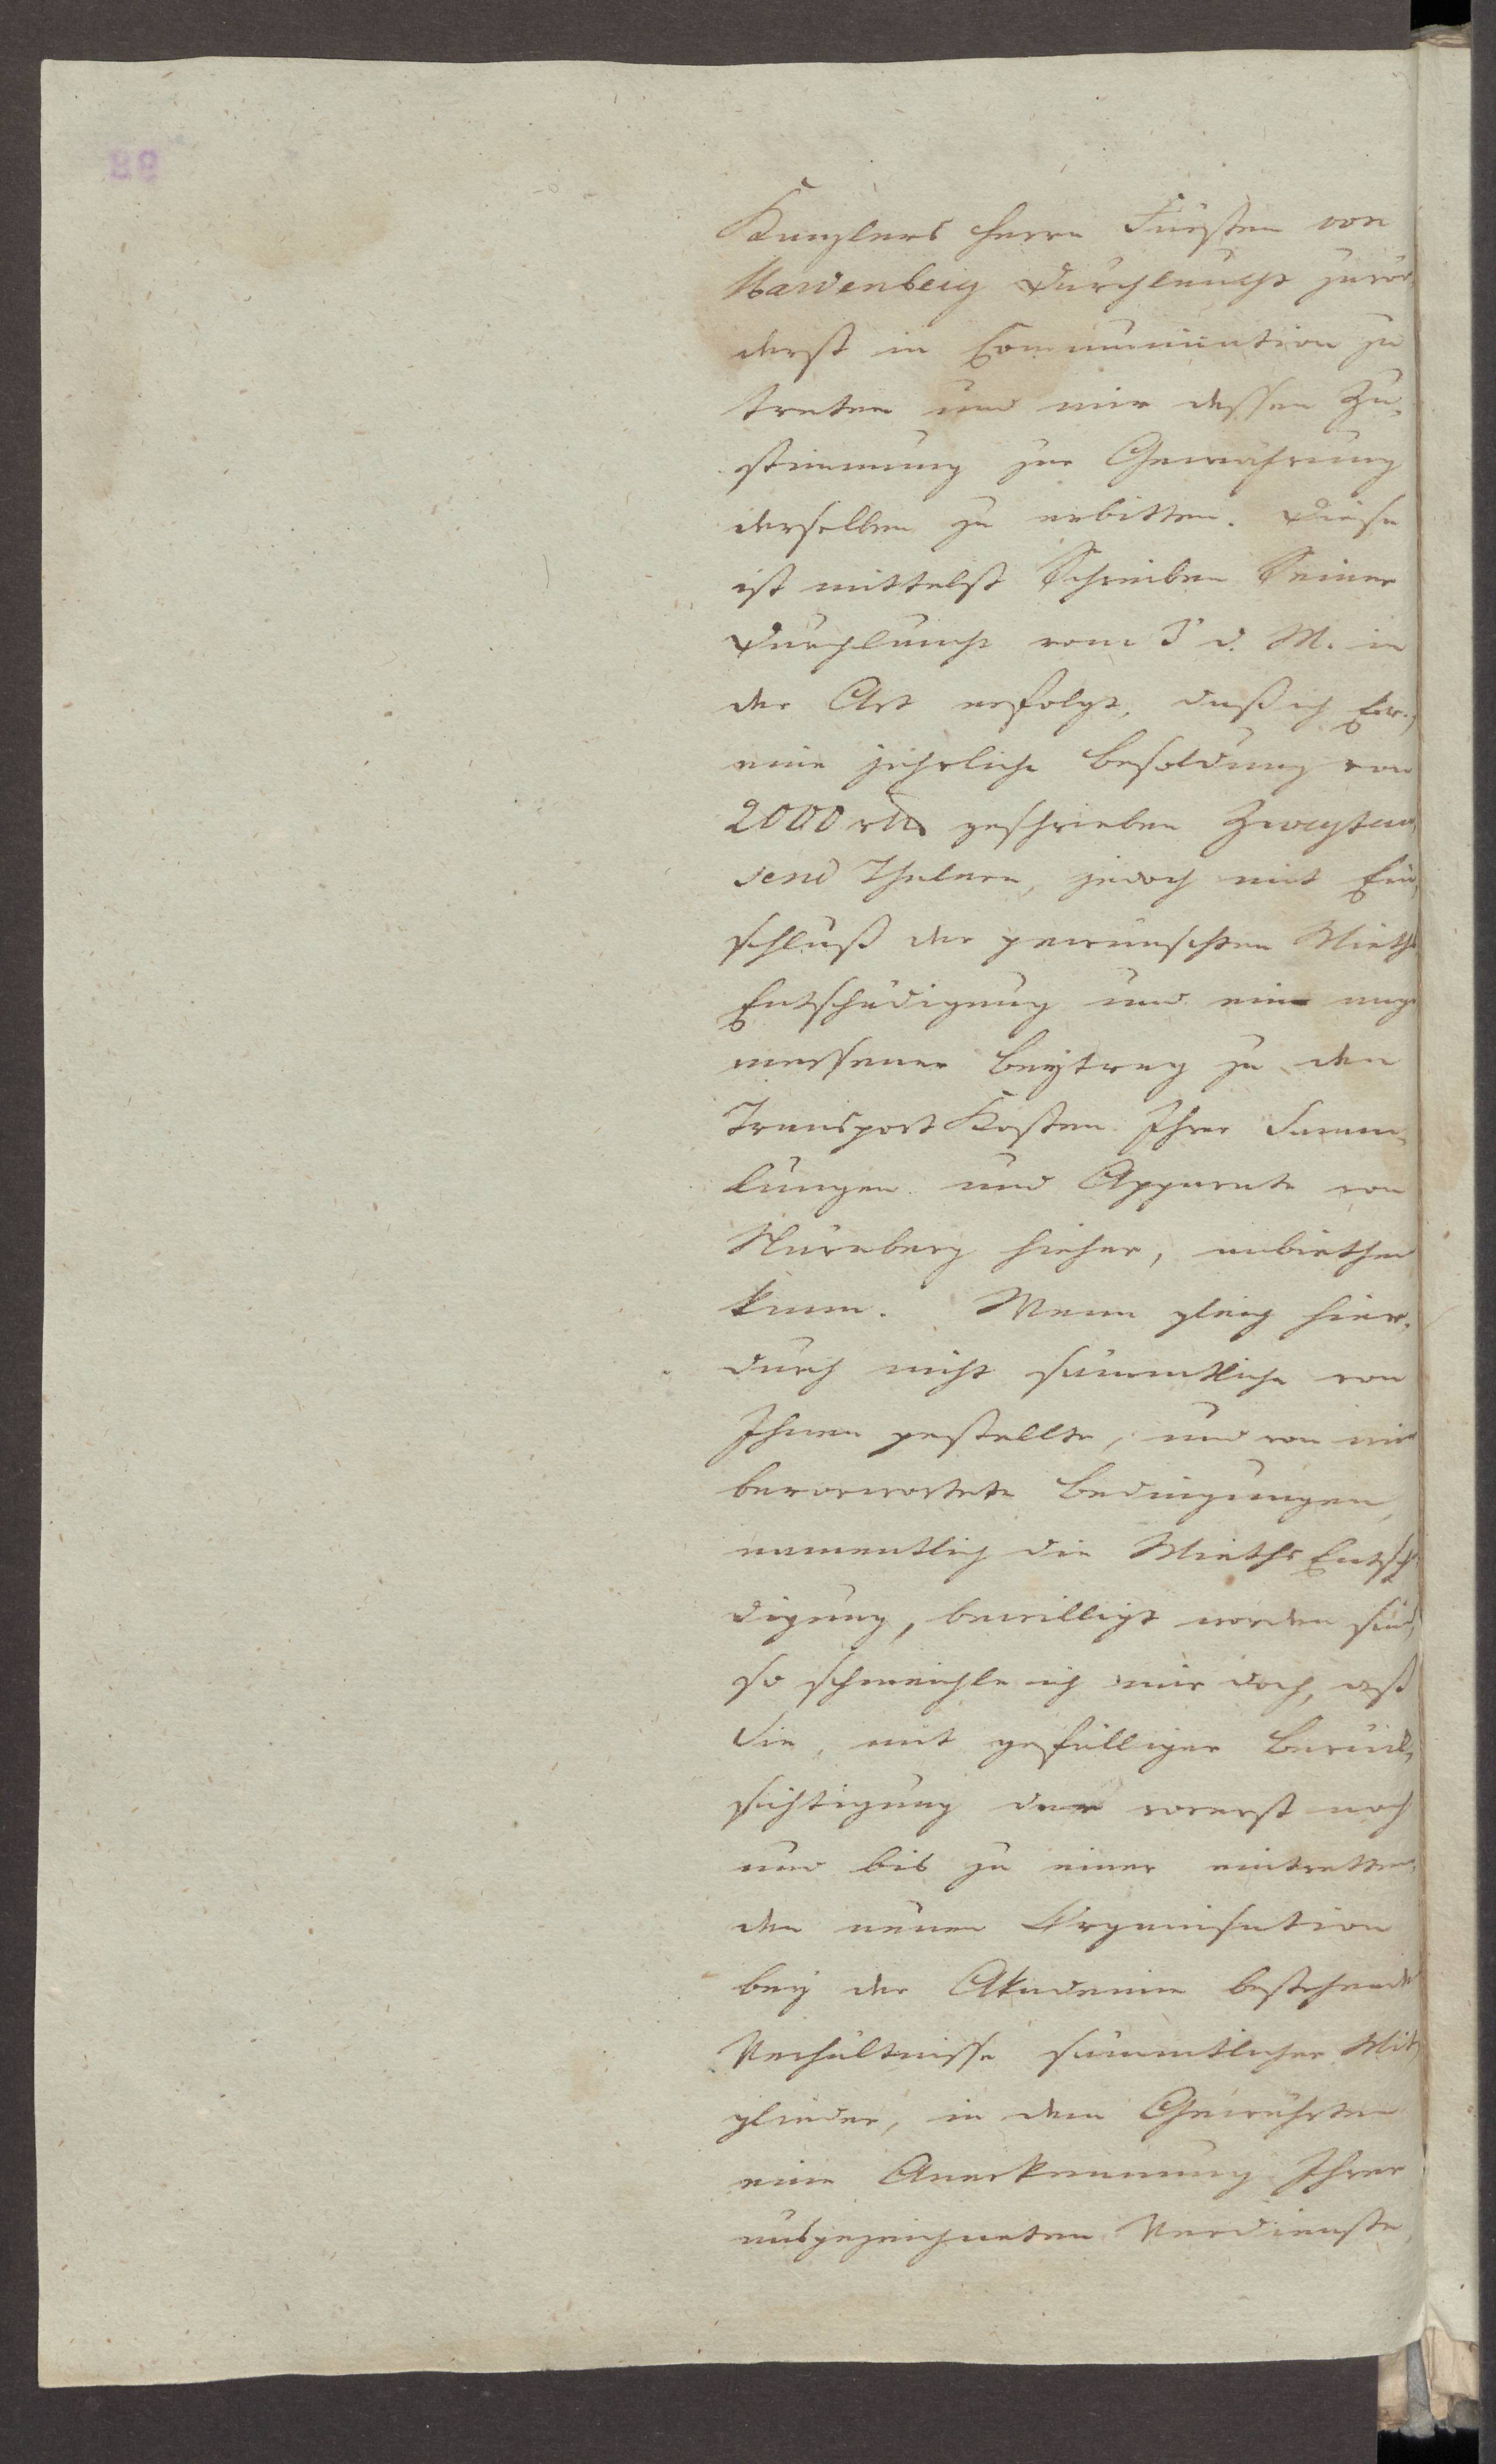 Kanzlers Herrn Fürsten von
Hardenberg Durchlaucht zuvör„
derst in Communication zu
treten und mir dessen Zu„
stimmung zur Gewährung
derselben zu erbitten. Diese
ist mittelst Schreiben Seiner
Durchlaucht vom 3 d. M. in
der Art erfolgt, daß ich Ew.
eine jährliche Besoldung von
2000 rth geschrieben Zweytau„
send Thalern, jedoch mit Ein„
schluß der gewünschten Mieths
Entschädigung und eine ange
messener Beytrag zu den
Transport Kosten Ihrer Samm„
lungen und Apparate von
Nürnberg hieher, anbiethen
kann. Wenn gleich hier„
durch nicht sämmtliche von
Ihnen gestellte, und von mir
bevorwortete Bedingungen,
namentlich die Mieths Entschä
digung, bewilligt worden sind,
so schmeichle ich mir doch, daß
Sie, mit gefälliger Berück„
sichtigung der vorerst noch
und bis zu einer eintretten„
den neuen Organisation
bey der Akademie bestehenden
Verhältnisse sämmtlicher Mit„
glieder, in dem Gewährten
eine Anerkennung Ihrer
ausgezeichneten Verdienste,